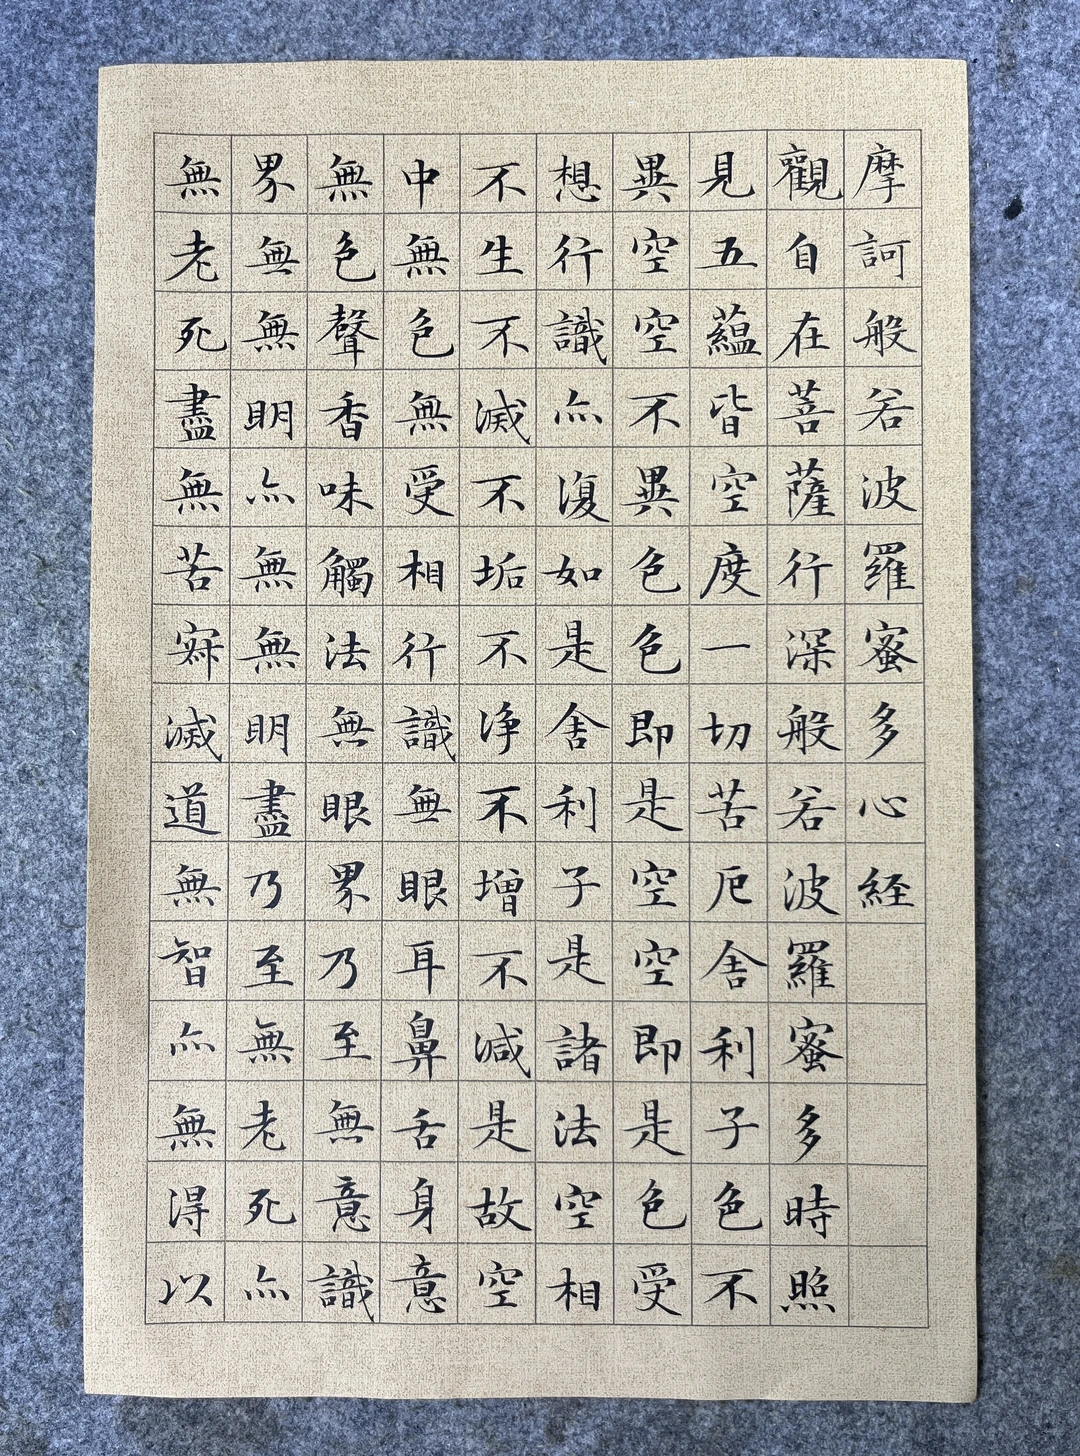 摩訶般若波羅蜜多心経
觀自在菩薩行深般若波羅蜜多時照
見五蘊皆空度一切苦厄舍利子色不
異空空不異色色即是空空即是色受
想行識亦復如是舍利子是諸法空相
不生不滅不垢不净不增不減是故空
中無色無受相行識無眼耳鼻舌身意
無色聲香味觸法無眼界乃至無意識
界無無明亦無無明盡乃至無老死亦
無老死盡無苦寂滅道無智亦無得以